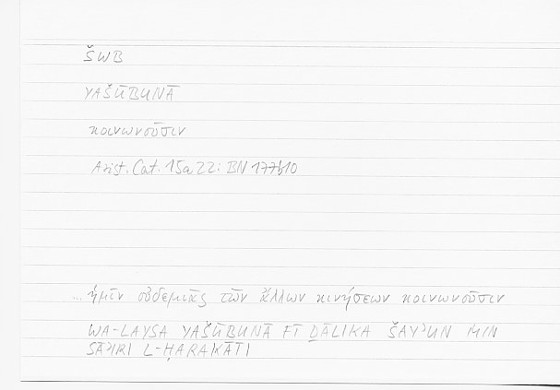 ŠWB
YAŠŪBUNĀ
κοινωνοῦσιν
Arist. Cat. 15a22: BN 177b10
... ἡμῖν οὐδεμιᾶς τῶν ἄλλων κινήσεων κοινωνοῦσιν
WA-LAYSA YAŠŪBUNĀ FĪ ḎĀLIKA ŠAYʾUN MIN
SĀʾIRI L-ḤARAKĀTI